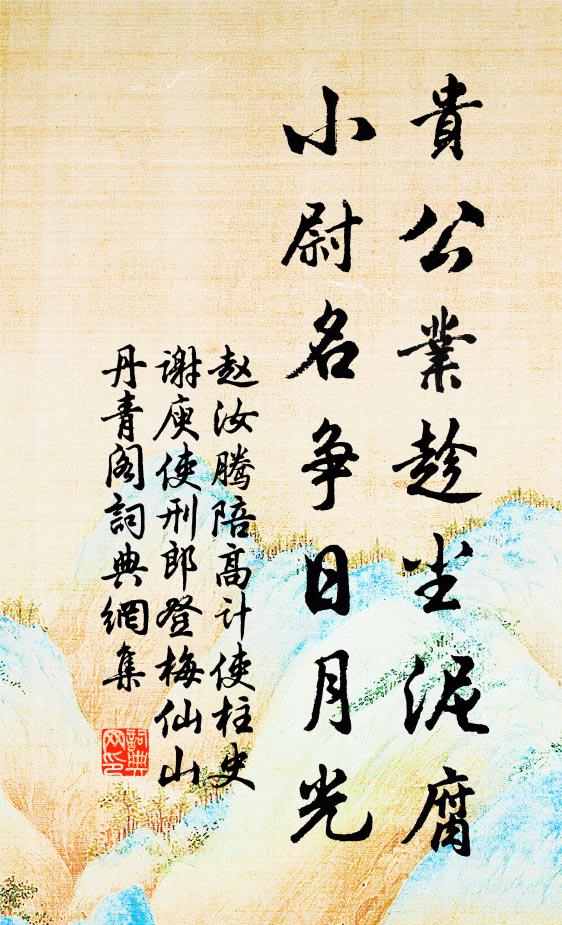 貴公業趁尘泥腐
小尉名争日月光
赵汝腾陪高计使柱史
谢庾使刑郎登梅仙山
丹青阁詞典網集
詞典网印